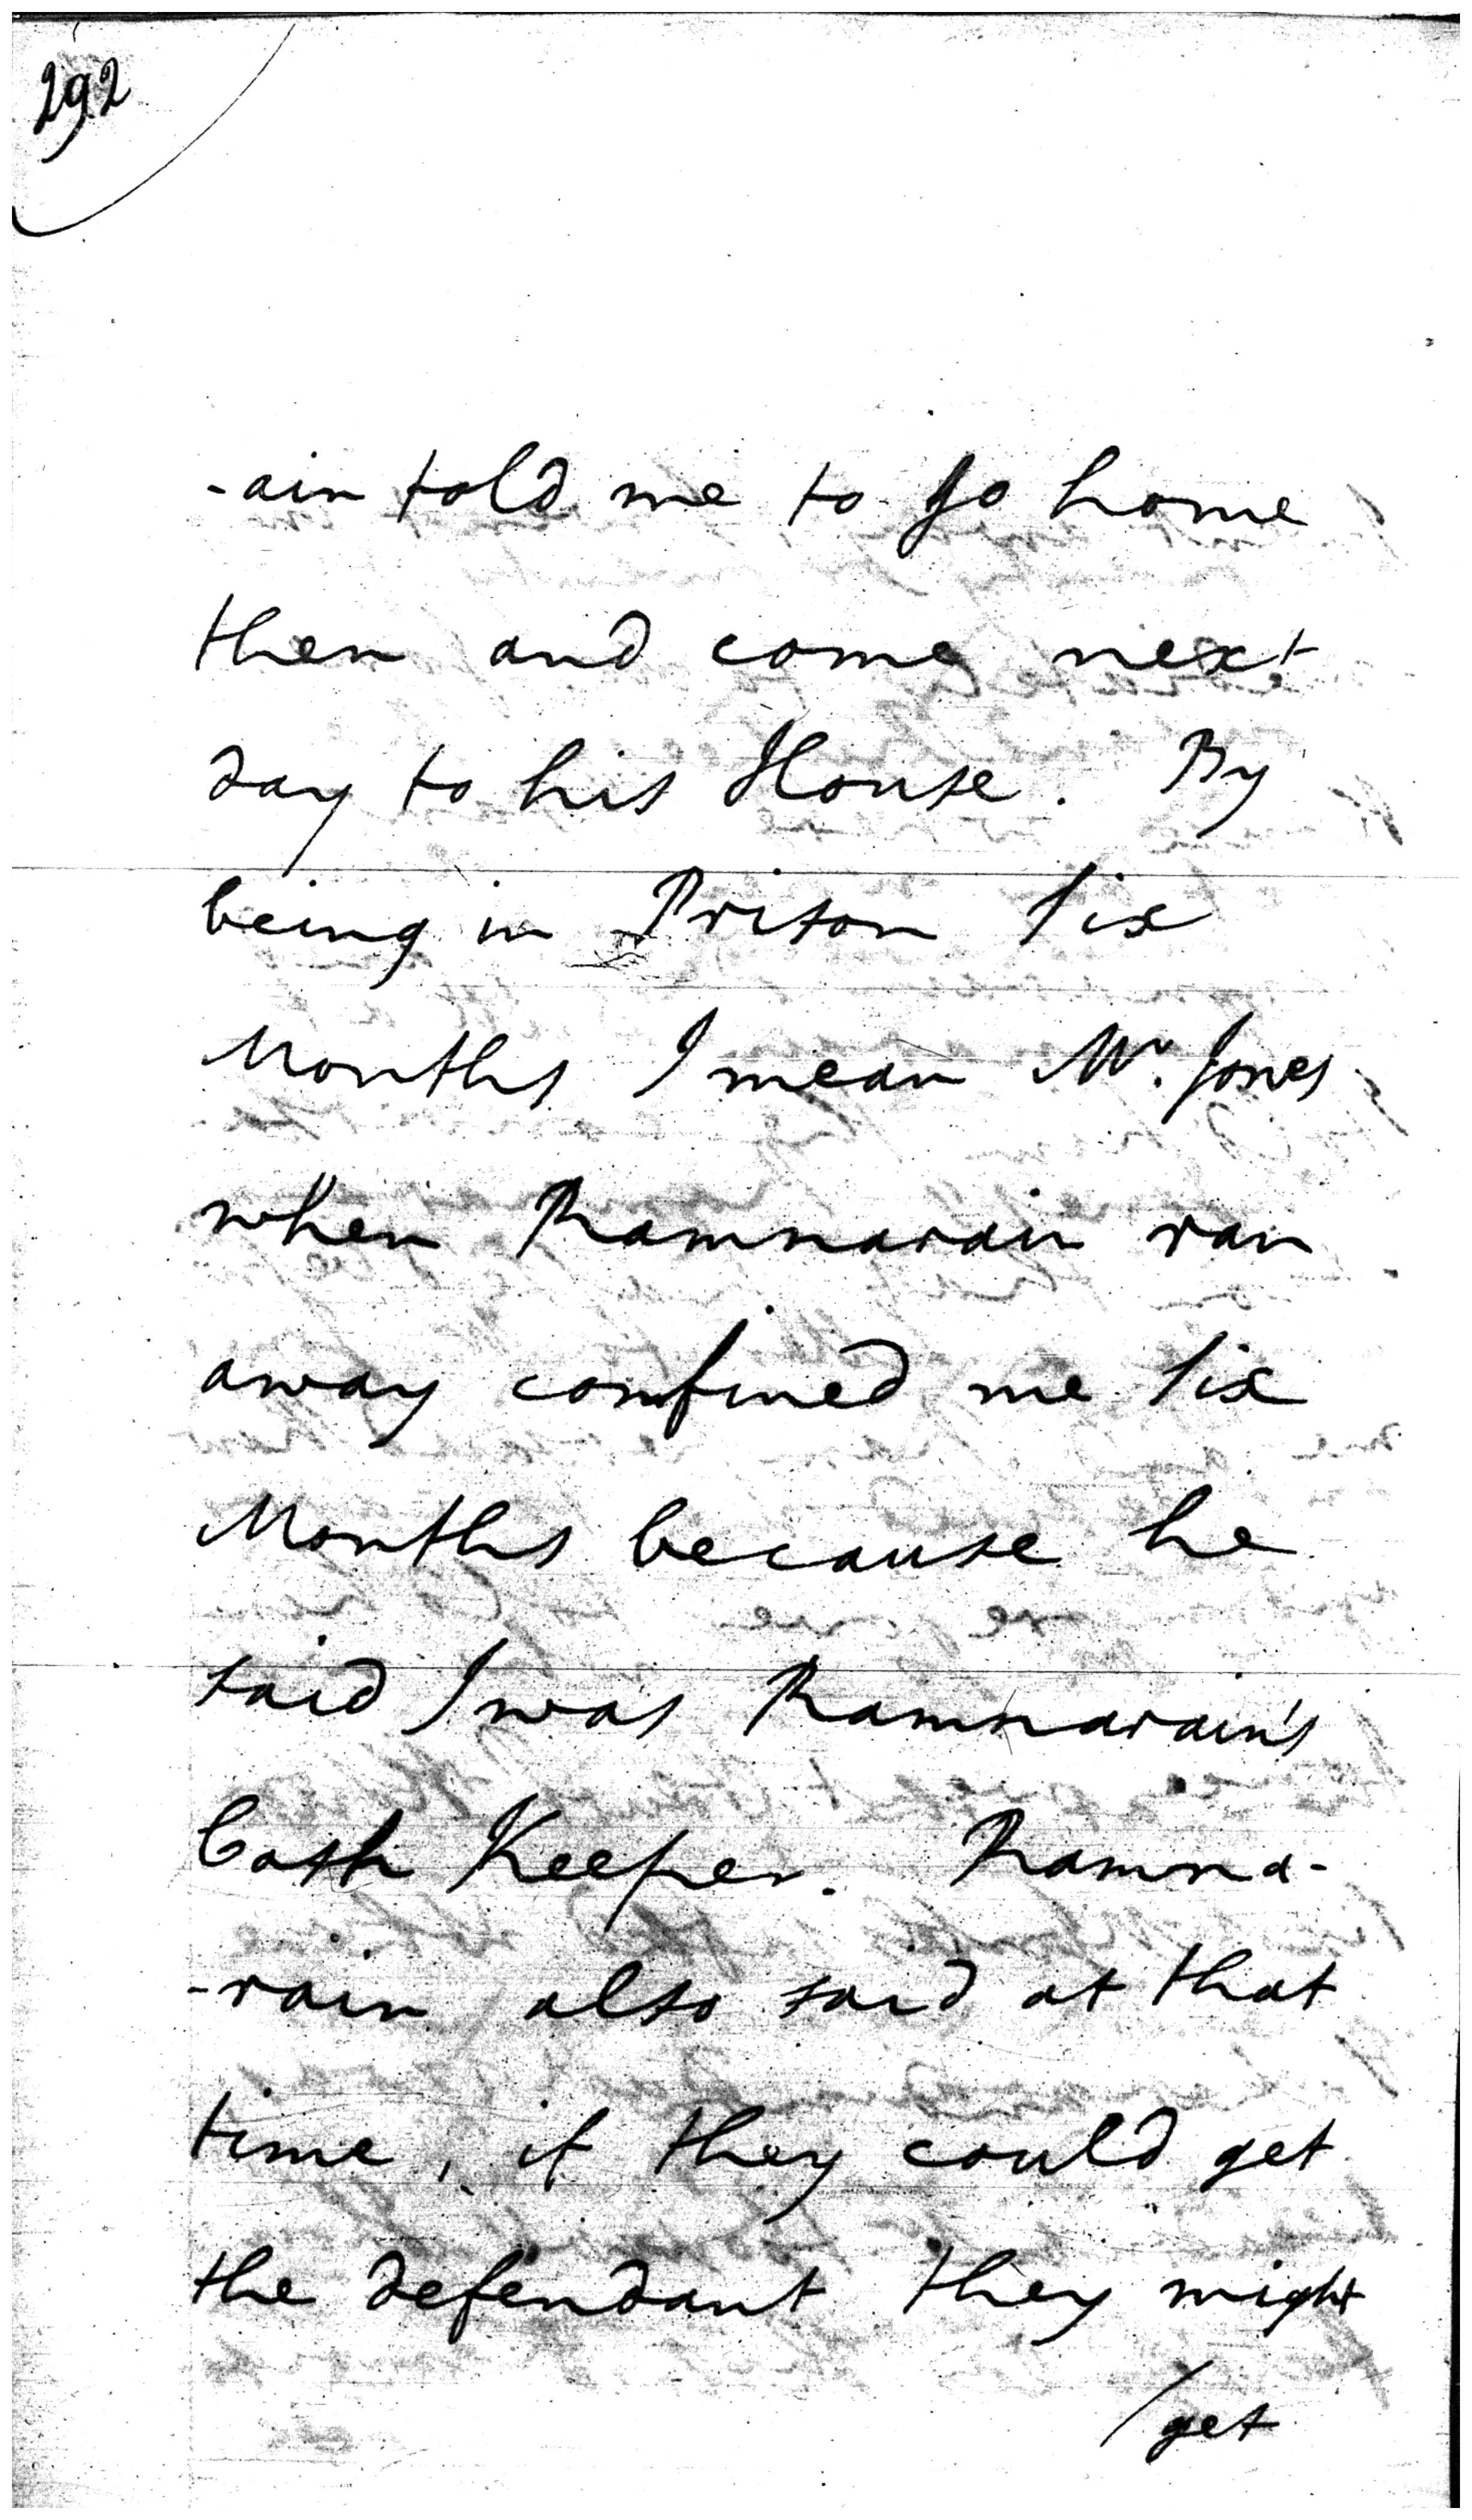 292
-ain told me to go home
then and come next
day to his House. By
being in Prison Six
Months I mean Mr. Jones
when Ramnarain ran
away confined me Six
Months because he
said I was Ramnarain's
Cash Keeper. Ramna-
-rain also said at that
time, if they could get
the defendant they might
/get